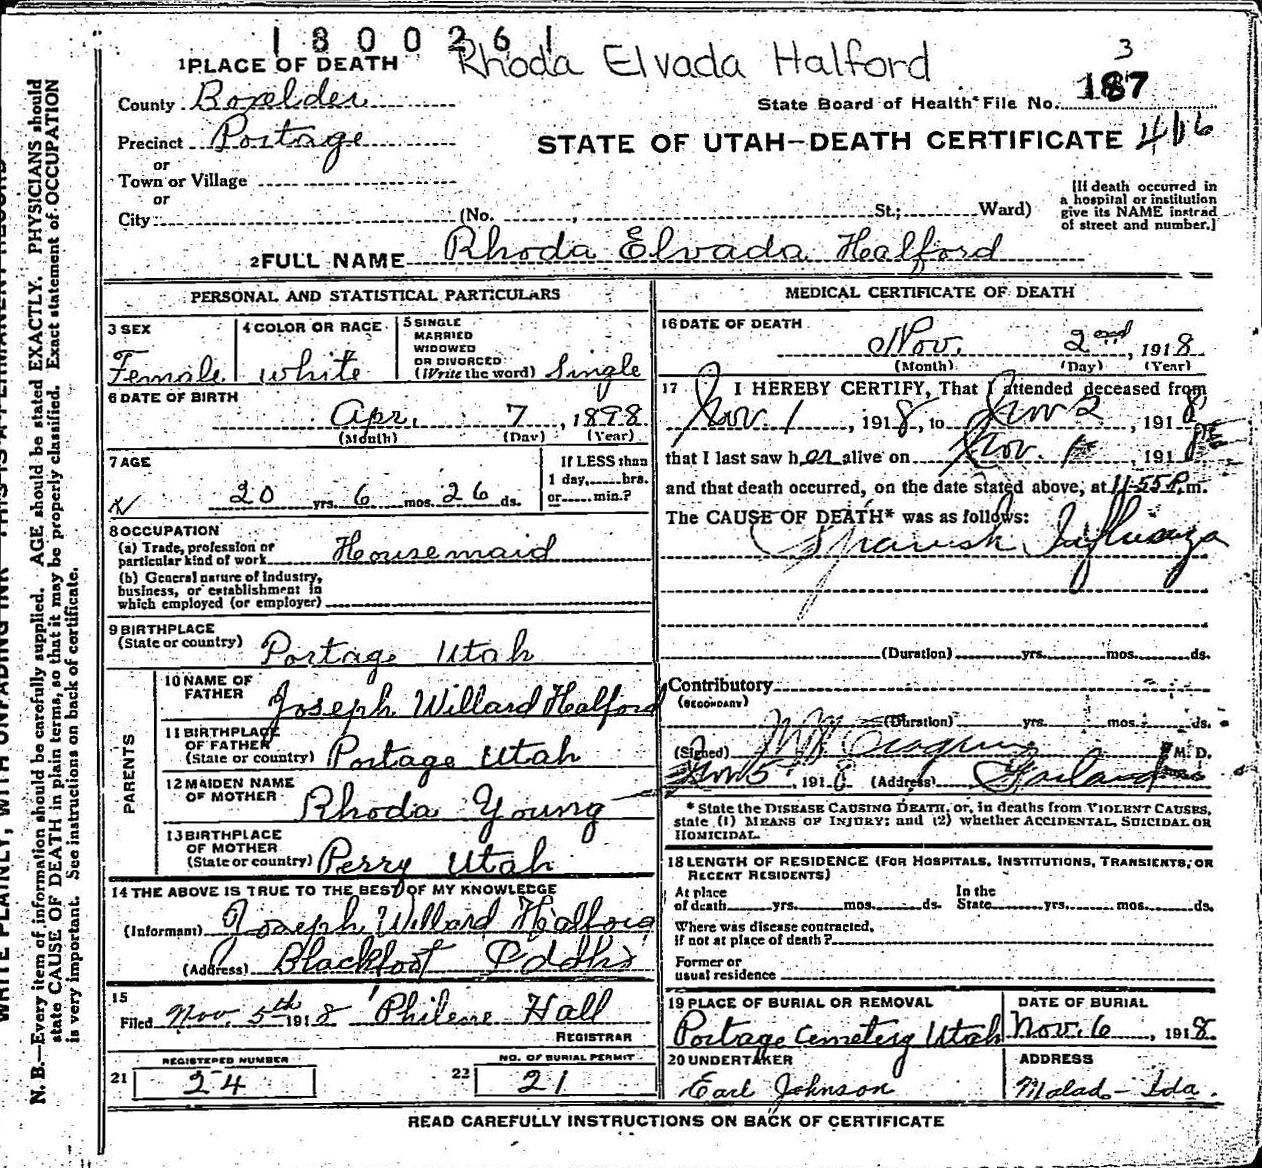 1800261
Rhoda Elvada Halford
3
1 PLACE OF DEATH
County Boxelder
State Board of Health File No. 187
Precinct Portage
STATE OF UTAH—DEATH CERTIFICATE 416
or
Town or Village
or
City
(No. , St.; Ward)
[If death occurred in
a hospital or institution
give its NAME instead
of street and number.]
2 FULL NAME Rhoda Elvada Halford
PERSONAL AND STATISTICAL PARTICULARS
3 SEX
Female
4 COLOR OR RACE
white
5 SINGLE
MARRIED
WIDOWED
OR DIVORCED
(Write the word) Single
6 DATE OF BIRTH
Apr. 7, 1898
(Month) (Day) (Year)
7 AGE
20 yrs. 6 mos. 26 ds.
If LESS than
1 day, hrs.
or min.?
8 OCCUPATION
(a) Trade, profession or
particular kind of work Housemaid
(b) General nature of industry,
business, or establishment in
which employed (or employer)
9 BIRTHPLACE
(State or country) Portage Utah
PARENTS
10 NAME OF
FATHER Joseph Willard Halford
11 BIRTHPLACE
OF FATHER
(State or country) Portage Utah
12 MAIDEN NAME
OF MOTHER Rhoda Young
13 BIRTHPLACE
OF MOTHER
(State or country) Perry Utah
14 THE ABOVE IS TRUE TO THE BEST OF MY KNOWLEDGE
(Informant) Joseph Willard Halford
(Address) Blackfoot
15
Filed Nov. 5th 1918 Philene Hall
REGISTRAR
REGISTERED NUMBER
21 24
NO. OF BURIAL PERMIT
22 21
MEDICAL CERTIFICATE OF DEATH
16 DATE OF DEATH
Nov. 2nd, 1918
(Month) (Day) (Year)
17 I HEREBY CERTIFY, That I attended deceased from
Nov. 1, 1918, to Nov 2, 1918
that I last saw her alive on Nov. 1, 1918
and that death occurred, on the date stated above, at 11-55 P.m.
The CAUSE OF DEATH* was as follows:
Spanish Influenza
(Duration) yrs. mos. ds.
Contributory
(SECONDARY)
(Duration) yrs. mos. ds.
(Signed) M. D.
Nov 5, 1918 (Address) Garland
* State the DISEASE CAUSING DEATH, or, in deaths from VIOLENT CAUSES,
state (1) MEANS OF INJURY; and (2) whether ACCIDENTAL, SUICIDAL OR
HOMICIDAL.
18 LENGTH OF RESIDENCE (FOR HOSPITALS, INSTITUTIONS, TRANSIENTS, OR
RECENT RESIDENTS)
At place
of death yrs. mos. ds.
In the
State yrs. mos. ds.
Where was disease contracted,
if not at place of death?
Former or
usual residence
19 PLACE OF BURIAL OR REMOVAL
Portage Cemetery Utah
DATE OF BURIAL
Nov. 6, 1918
20 UNDERTAKER
Earl Johnson
ADDRESS
Malad - Ida.
READ CAREFULLY INSTRUCTIONS ON BACK OF CERTIFICATE
WRITE PLAINLY, WITH UNFADING INK—THIS IS A PERMANENT RECORD
N. B.—Every item of information should be carefully supplied. AGE should be stated EXACTLY. PHYSICIANS should
state CAUSE OF DEATH in plain terms, so that it may be properly classified. Exact statement of OCCUPATION
is very important. See instructions on back of certificate.